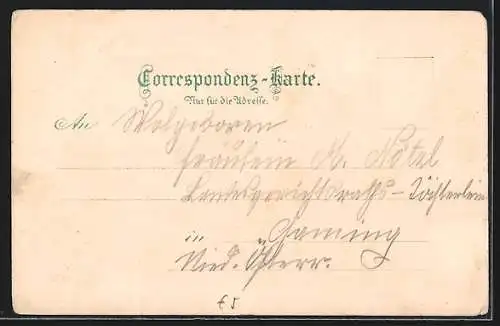 Correspondenz-Karte.
Nur für die Adresse.
An Wolgeboren
Fräulein M. Nötel
Landesgerichtsraths-Töchterlein
in Gaming
Nied. Österr.